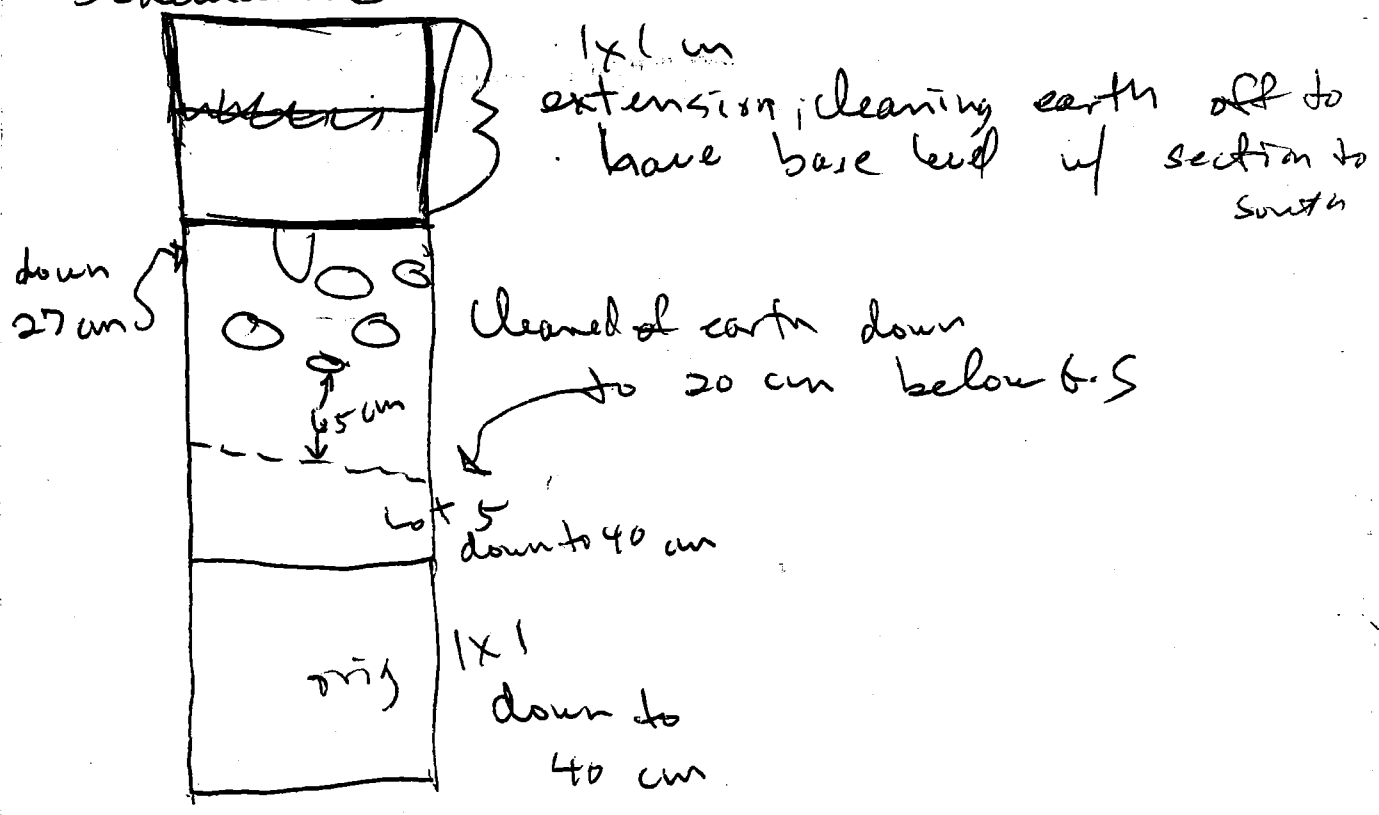 1x1 m
extension, cleaning earth off to
have base level w/ section to
south
down
27 cm
Cleaned of earth down
to 20 cm below G.S
cm
Lot 5
down to 40 cm
orig
1x1
down to
40 cm